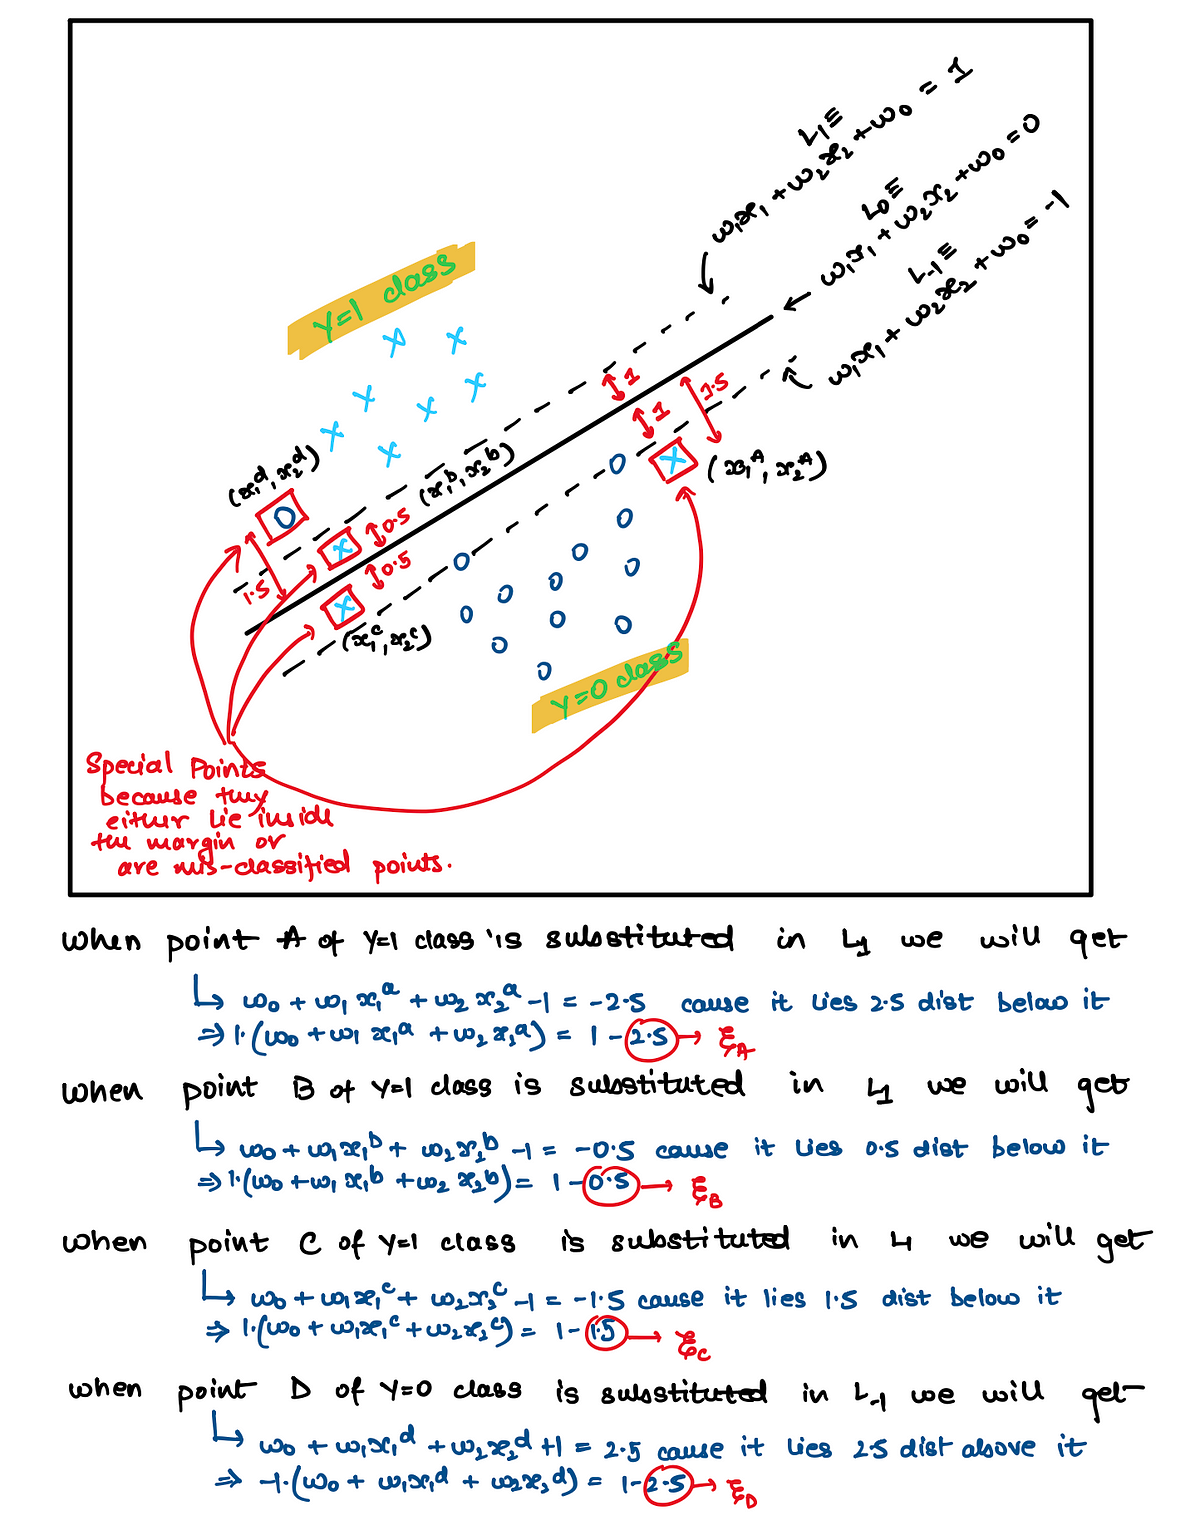 L₁ ≡
w₁x₁ + w₂x₂ + w₀ = 1
L₀ ≡
w₁x₁ + w₂x₂ + w₀ = 0
L₋₁ ≡
w₁x₁ + w₂x₂ + w₀ = -1
Y=1 class
1
1
1.5
(x₁ᵈ, x₂ᵈ)
(x₁ᵇ, x₂ᵇ)
(x₁ᴬ, x₂ᴬ)
0.5
0.5
1.5
(x₁ᶜ, x₂ᶜ)
Y=0 class
Special Points
because they
either lie inside
the margin or
are mis-classified points.
when point A of Y=1 class is substituted in L₁ we will get
w₀ + w₁x₁ᵃ + w₂x₂ᵃ -1 = -2.5 cause it lies 2.5 dist below it
⇒ 1.(w₀ + w₁x₁ᵃ + w₂x₂ᵃ) = 1 - 2.5 → ξ_A
when point B of Y=1 class is substituted in L₁ we will get
w₀ + w₁x₁ᵇ + w₂x₂ᵇ -1 = -0.5 cause it lies 0.5 dist below it
⇒ 1.(w₀ + w₁x₁ᵇ + w₂x₂ᵇ) = 1 - 0.5 → ξ_B
when point C of Y=1 class is substituted in L₁ we will get
w₀ + w₁x₁ᶜ + w₂x₂ᶜ -1 = -1.5 cause it lies 1.5 dist below it
⇒ 1.(w₀ + w₁x₁ᶜ + w₂x₂ᶜ) = 1 - 1.5 → ξ_C
when point D of Y=0 class is substituted in L₋₁ we will get
w₀ + w₁x₁ᵈ + w₂x₂ᵈ +1 = 2.5 cause it lies 2.5 dist above it
⇒ -1.(w₀ + w₁x₁ᵈ + w₂x₂ᵈ) = 1 - 2.5 → ξ_D